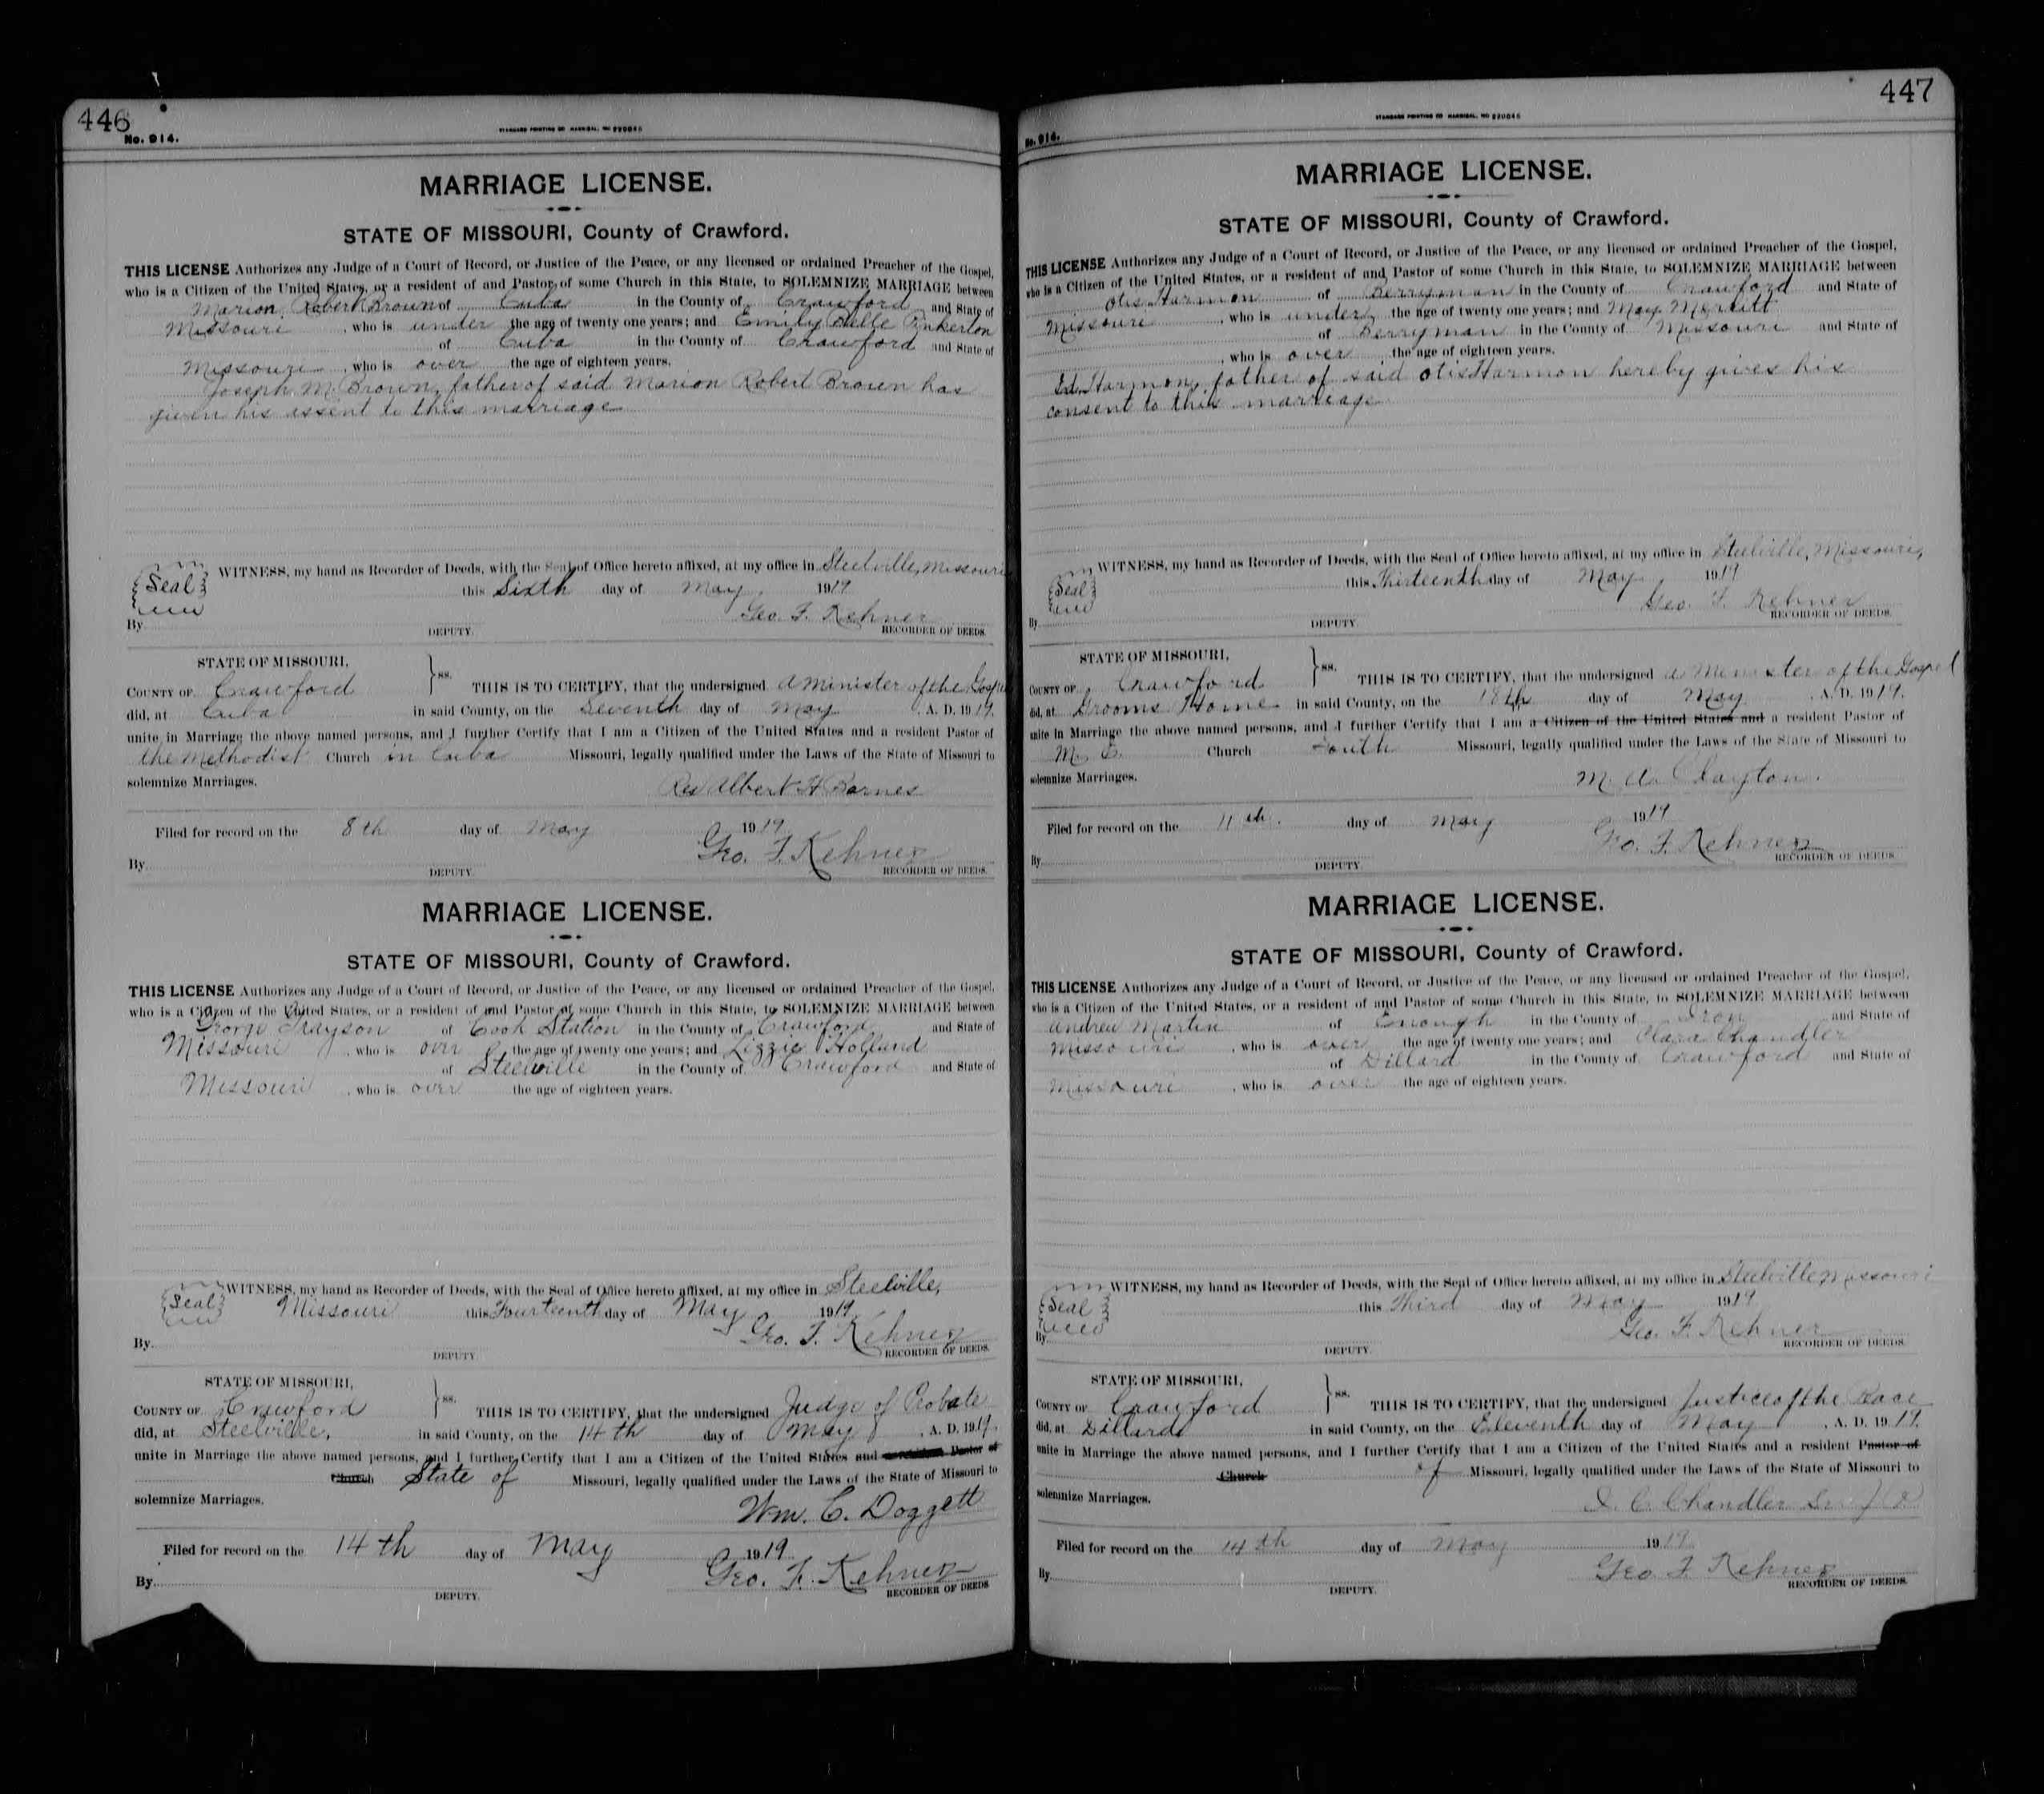 446
No. 914.
STANDARD PRINTING CO HANNIBAL, MO 220045
MARRIAGE LICENSE.
STATE OF MISSOURI, County of Crawford.
THIS LICENSE Authorizes any Judge of a Court of Record, or Justice of the Peace, or any licensed or ordained Preacher of the Gospel,
who is a Citizen of the United States, or a resident of and Pastor of some Church in this State, to SOLEMNIZE MARRIAGE between
Marion Robert Brown of Cuba in the County of Crawford and State of
Missouri, who is under the age of twenty one years; and Emily Belle Pinkerton
of Cuba in the County of Crawford and State of
Missouri, who is over the age of eighteen years.
Joseph M. Brown, father of said Marion Robert Brown has
given his assent to this marriage
WITNESS, my hand as Recorder of Deeds, with the Seal of Office hereto affixed, at my office in Steelville, Missouri
Seal this Sixth day of May 1919
Geo. F. Rehner
By DEPUTY. RECORDER OF DEEDS.
STATE OF MISSOURI,
COUNTY OF Crawford } ss. THIS IS TO CERTIFY, that the undersigned a minister of the Gospel
did, at Cuba in said County, on the Seventh day of May, A. D. 1919,
unite in Marriage the above named persons, and I further Certify that I am a Citizen of the United States and a resident Pastor of
the Methodist Church in Cuba Missouri, legally qualified under the Laws of the State of Missouri to
solemnize Marriages. Rev Albert H Barnes
Filed for record on the 8th day of May 1919
Geo. F. Rehner
By DEPUTY. RECORDER OF DEEDS.
MARRIAGE LICENSE.
STATE OF MISSOURI, County of Crawford.
THIS LICENSE Authorizes any Judge of a Court of Record, or Justice of the Peace, or any licensed or ordained Preacher of the Gospel,
who is a Citizen of the United States, or a resident of and Pastor of some Church in this State, to SOLEMNIZE MARRIAGE between
George Grayson of Cook Station in the County of Crawford and State of
Missouri, who is over the age of twenty one years; and Lizzie Holland
of Steelville in the County of Crawford and State of
Missouri, who is over the age of eighteen years.
WITNESS, my hand as Recorder of Deeds, with the Seal of Office hereto affixed, at my office in Steelville,
Seal Missouri this Fourteenth day of May 1919
Geo. F. Rehner
By DEPUTY RECORDER OF DEEDS.
STATE OF MISSOURI,
COUNTY OF Crawford } ss. THIS IS TO CERTIFY, that the undersigned Judge of Probate
did, at Steelville, in said County, on the 14th day of May, A. D. 1919,
unite in Marriage the above named persons, and I further Certify that I am a Citizen of the United States and a resident Pastor of
Church State of Missouri, legally qualified under the Laws of the State of Missouri to
solemnize Marriages. Wm. C. Doggett
Filed for record on the 14th day of May 1919
Geo. F. Rehner
By DEPUTY. RECORDER OF DEEDS
447
No. 914.
STANDARD PRINTING CO HANNIBAL, MO 220045
MARRIAGE LICENSE.
STATE OF MISSOURI, County of Crawford.
THIS LICENSE Authorizes any Judge of a Court of Record, or Justice of the Peace, or any licensed or ordained Preacher of the Gospel,
who is a Citizen of the United States, or a resident of and Pastor of some Church in this State, to SOLEMNIZE MARRIAGE between
Otis Harmon of Berryman in the County of Crawford and State of
Missouri, who is under the age of twenty one years; and May Merkitt
of Berryman in the County of Missouri and State of
, who is over the age of eighteen years.
Ed. Harmon, father of said Otis Harmon hereby gives his
consent to this marriage
WITNESS, my hand as Recorder of Deeds, with the Seal of Office hereto affixed, at my office in Steelville, Missouri,
Seal this Thirteenth day of May 1919
Geo. F. Rehner
By DEPUTY. RECORDER OF DEEDS.
STATE OF MISSOURI,
COUNTY OF Crawford } ss. THIS IS TO CERTIFY, that the undersigned a Menister of the Gospel
did, at Grooms Home in said County, on the 18th day of May, A. D. 1919,
unite in Marriage the above named persons, and I further Certify that I am a Citizen of the United States and a resident Pastor of
M. E. Church South Missouri, legally qualified under the Laws of the State of Missouri to
solemnize Marriages. M. A. Clayton.
Filed for record on the 11th. day of May 1919
Geo. F. Rehner
By DEPUTY. RECORDER OF DEEDS.
MARRIAGE LICENSE.
STATE OF MISSOURI, County of Crawford.
THIS LICENSE Authorizes any Judge of a Court of Record, or Justice of the Peace, or any licensed or ordained Preacher of the Gospel,
who is a Citizen of the United States, or a resident of and Pastor of some Church in this State, to SOLEMNIZE MARRIAGE between
Andrew Martin of Enough in the County of Iron and State of
Missouri, who is over the age of twenty one years; and Clara Chandler
of Dillard in the County of Crawford and State of
Missouri, who is over the age of eighteen years.
WITNESS, my hand as Recorder of Deeds, with the Seal of Office hereto affixed, at my office in Steelville Missouri
Seal this Third day of May 1919
Geo. F. Rehner
By DEPUTY. RECORDER OF DEEDS.
STATE OF MISSOURI,
COUNTY OF Crawford } ss. THIS IS TO CERTIFY, that the undersigned Justice of the Peace
did, at Dillard in said County, on the Eleventh day of May, A. D. 1919,
unite in Marriage the above named persons, and I further Certify that I am a Citizen of the United States and a resident Pastor of
Church of Missouri, legally qualified under the Laws of the State of Missouri to
solemnize Marriages. Chandler
Filed for record on the 14th day of May 1919
Geo. F. Rehner
By DEPUTY. RECORDER OF DEEDS.